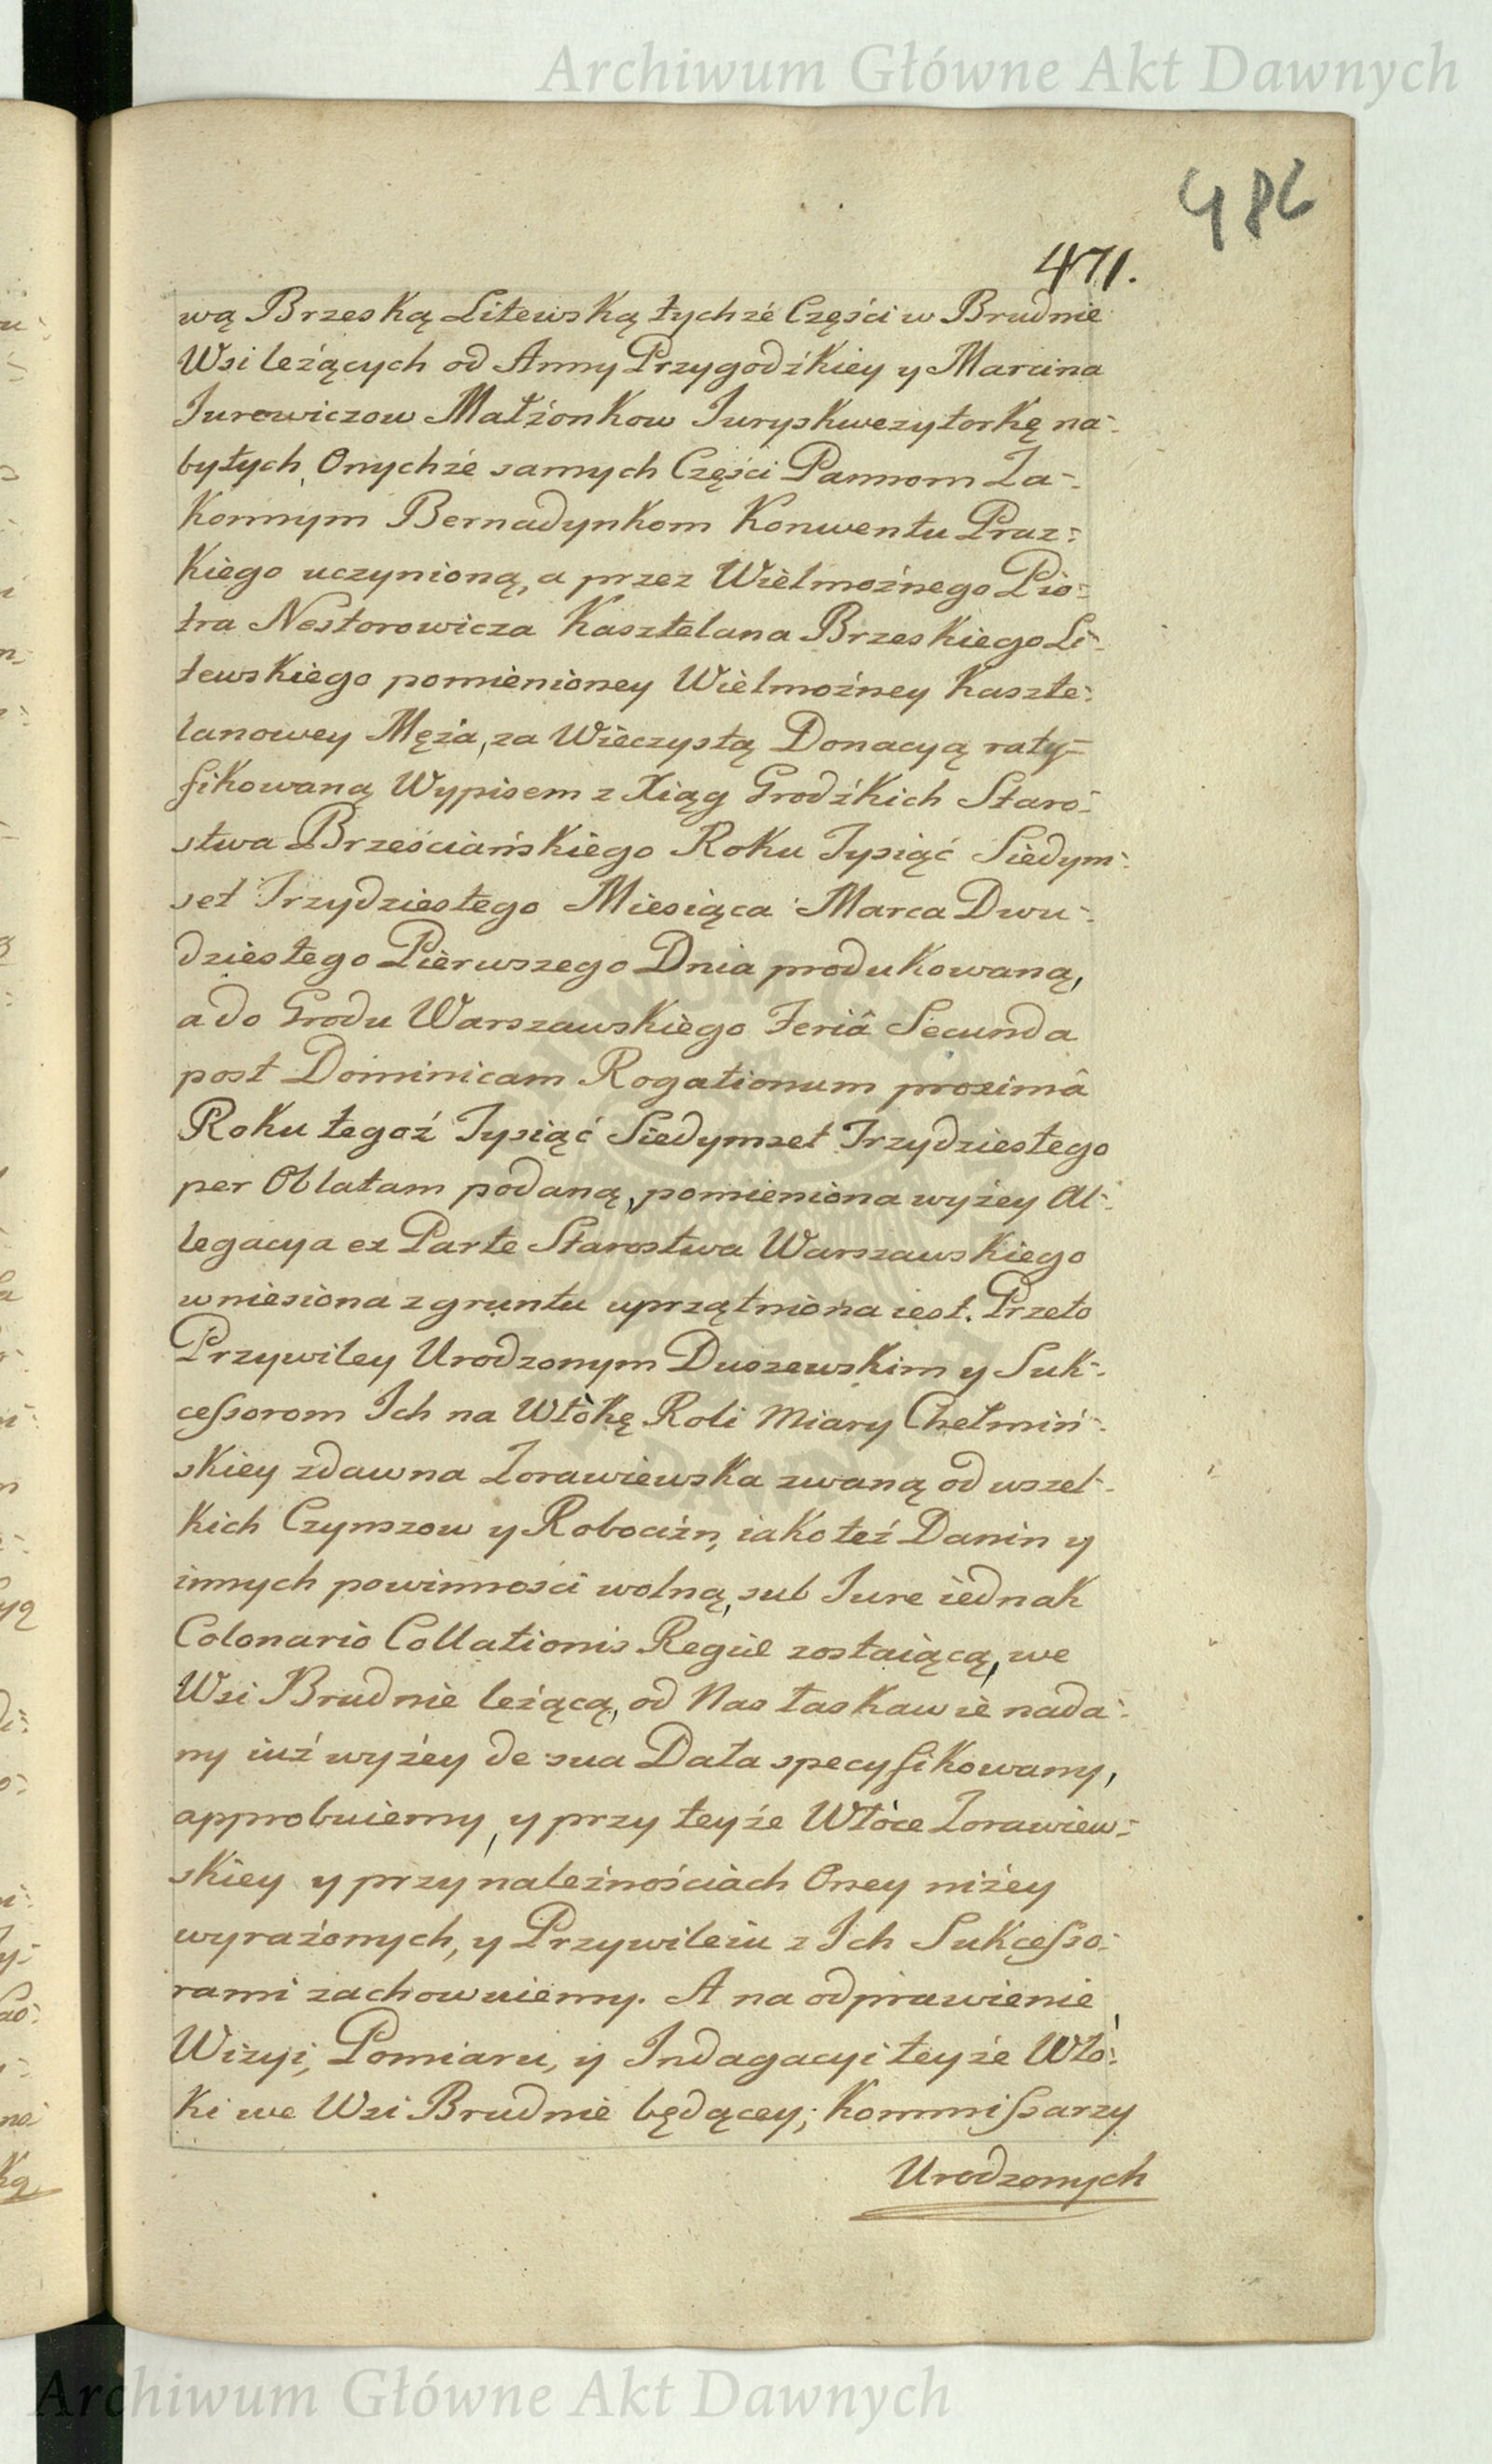 Archiwum Główne Akt Dawnych
486
471.
wą Brzeską Litewską tychże Części w Brudnie
Wsi leżących od Anny Przygodźkiey y Marcina
Jurewiczow Małżonkow Juryskwezytorkę na-
bytych, Onychże samych Części Pannom Za-
konnym Bernadynkom Konwentu Praz-
kiego uczynioną, a przez Wielmożnego Pio-
tra Nestorowicza Kasztelana Brzeskiego Li-
tewskiego pomienioney Wielmożney Kaszte-
lanowey Męża, za Wieczystą Donacyą raty-
fikowaną Wypisem z Xiąg Grodźkich Staro-
stwa Brześciańskiego Roku Tysiąć Siedym-
set Trzydziestego Miesiąca Marca Dwu-
dziestego Pierwszego Dnia produkowaną,
a do Grodu Warszawskiego Feriâ Secunda
post Dominicam Rogationum proximâ
Roku tegoż Tysiąć Siedymset Trzydziestego
per Oblatam podaną, pomieniona wyżey Al-
legacya ex Parte Starostwa Warszawskiego
wniesiona z gruntu uprzątniona iest. Przeto
Przywiley Urodzonym Duszewskim y Suk-
cessorom Ich na Włókę Roli Miary Chełmiń-
skiey zdawna Zorawiewska zwaną od wszel-
kich Czynszow y Robocizn, iako też Danin y
innych powinności wolną, sub Jure iednak
Colonario Collationis Regiæ zostaiącą, we
Wsi Brudnie leżącą, od Nas łaskawie nada-
ny iuż wyżey de sua Data specyfikowany,
approbuiemy, y przy teyże Włóce Zorawiew-
skiey y przynależnościach Oney niżey
wyrażonych, y Przywileiu z Ich Sukcesso-
rami zachowuiemy. A na odprawienie
Wizyi, Pomiaru, y Indagacyi teyże Włó-
ki we Wsi Brudnie będącey; Kommissarzy
Urodzonych
Archiwum Główne Akt Dawnych